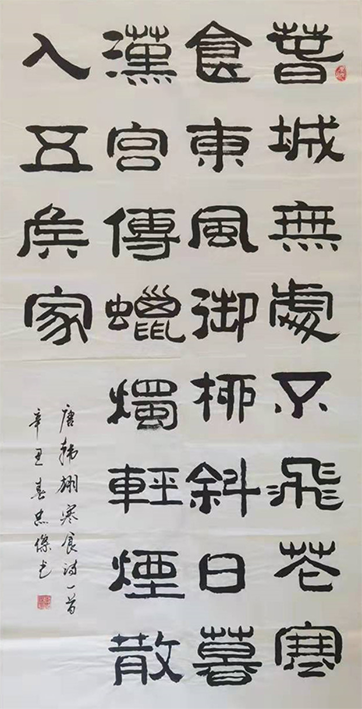 萅城無處不飛花寒
食東風御柳斜日暮
漢宮傳蠟燭輕煙散
入五侯家
唐韩翃寒食诗一首
辛丑春忠傑书